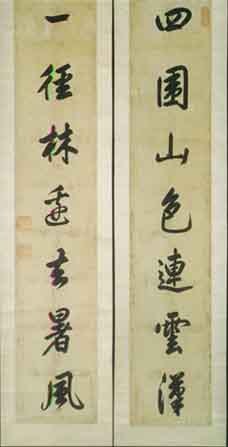 四圍山色連雲漢
一徑林去暑風